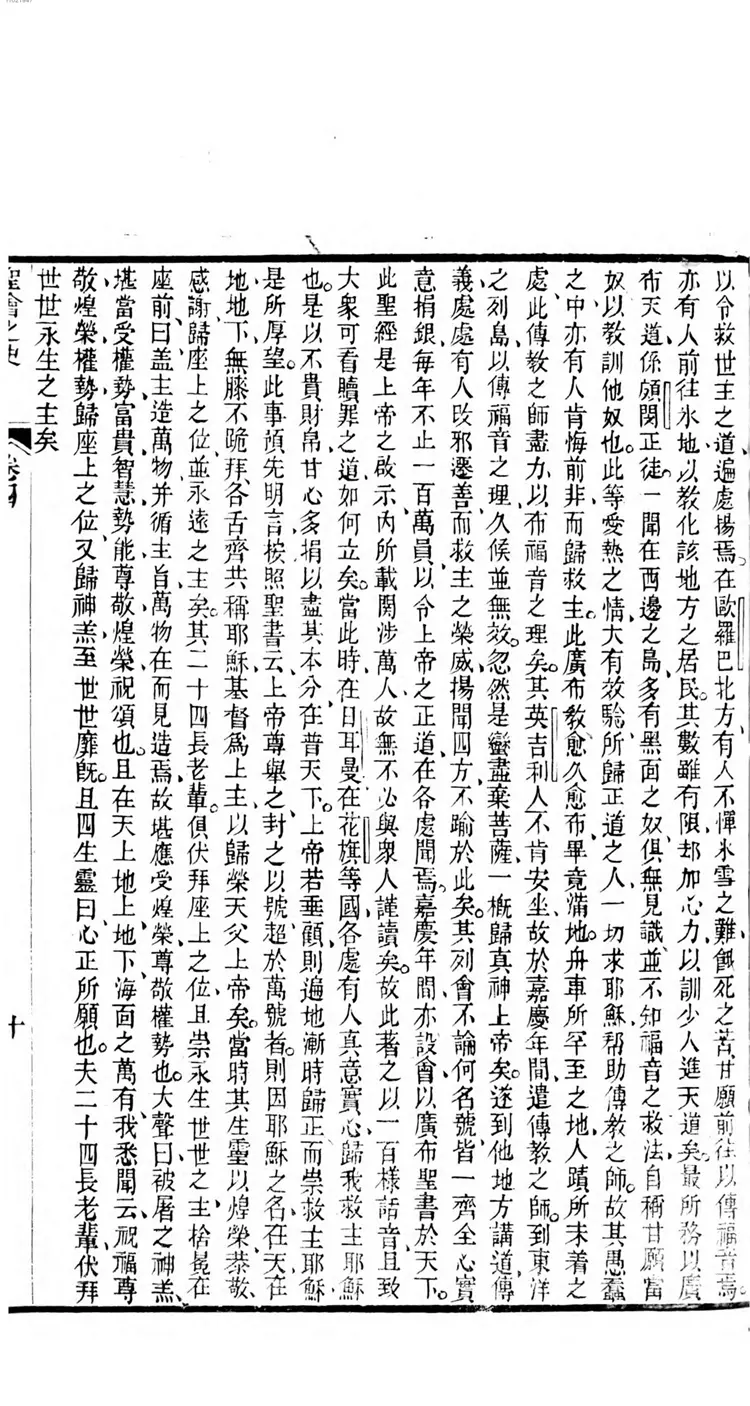 以令救世王之道、遍處揚焉。在歐羅巴北方、有人不憚氷雪之難、餓死之苦、甘願前往以傳福音焉。
亦有人前往氷地、以教化該地方之居民。其數雖有限、却加心力以訓少人進天道矣。最所務以廣
布天道、係頗閔正徒。一聞在西邊之島、多有黑面之奴、俱無見識、並不知福音之救法、自稱甘願當
奴、以教訓他奴也。此等愛熱之情、大有效驗、所歸正道之人、一切求耶穌帮助傳教之師。故其愚蠢
之中、亦有人肯悔前非、而歸救主。此廣布教、愈久愈布、畢竟滿地。舟車所罕至之地、人蹟所未着之
處、此傳教之師、盡力以布福音之理矣。其英吉利人、不肯安坐、故於嘉慶年間、遣傳教之師、到東洋
之列島、以傳福音之理、久候並無效。忽然是蠻盡棄菩薩、一概歸真神上帝矣。遂到他地方講道傳
義、處處有人改邪遷善、而救主之榮威、揚聞四方、不踰於此矣。其列會不論何名號、皆一齊全心實
意捐銀、每年不止一百萬員、以令上帝之正道、在各處聞焉。嘉慶年間、亦設會以廣布聖書於天下。
此聖經是上帝之啟示、內所載關涉萬人、故無不必與衆人謹讀矣。故此著之以一百樣話音、且致
大衆可看贖罪之道、如何立矣。當此時、在日耳曼、在花旗等國、各處有人真意實心、歸我救主耶穌
也。是以不貴財帛、甘心多捐、以盡其本分、在普天下。上帝若垂顧、則遍地漸時歸正、而崇救主耶穌、
是所厚望。此事頃先明言、按照聖書云、上帝尊舉之、封之以號、超於萬號者。則因耶穌之名、在天在
地地下、無膝不跪拜、各舌齊共稱耶穌基督爲上主、以歸榮天父上帝矣。當時其生靈以煌榮恭敬、
感謝、歸座上之位、並永遠之主矣。其二十四長老輩、俱伏拜座上之位、且崇永生世世之主、捨冕在
座前曰、盖主造萬物、并循主旨、萬物在而見造焉、故堪應受煌榮尊敬權勢也。大聲曰、被屠之神羔、
堪當受權勢、富貴、智慧、勢能、尊敬、煌榮、祝頌也。且在天上地上、地下海面之萬有、我悉聞云、祝福尊
敬、煌榮權勢、歸座上之位、又歸神羔、至世世靡旣。且四生靈曰、心正所願也。夫二十四長老輩、伏拜
世世永生之主矣
聖會之史
卷四
十